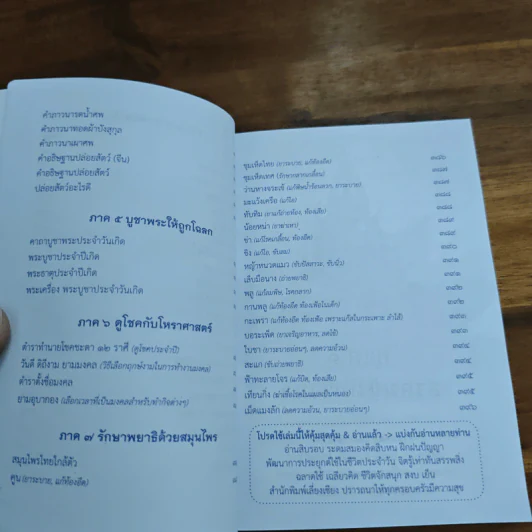 คำภาวนารดน้ำศพ
คำภาวนาทอดผ้าบังสุกุล
คำภาวนาเผาศพ
คำอธิษฐานปล่อยสัตว์ (จีน)
คำอธิษฐานปล่อยสัตว์
ปล่อยสัตว์อะไรดี
ภาค ๕ บูชาพระให้ถูกโฉลก
คาถาบูชาพระประจำวันเกิด
พระบูชาประจำปีเกิด
พระธาตุประจำปีเกิด
พระเครื่อง พระบูชาประจำวันเกิด
ภาค ๖ ดูโชคกับโหราศาสตร์
ตำราทำนายโชคชะตา ๑๒ ราศี (ดูโชคประจำปี)
วันดี ดิถีงาม ยามมงคล (วิธีเลือกฤกษ์งามในการทำงานมงคล)
ตำราตั้งชื่อมงคล
ยามอุบากอง (เลือกเวลาที่เป็นมงคลสำหรับทำกิจต่างๆ)
ภาค ๗ รักษาพยาธิด้วยสมุนไพร
สมุนไพรไทยใกล้ตัว
คูน (ยาระบาย, แก้ท้องผูก)
ชุมเห็ดไทย (ยาระบาย, แก้ท้องผูก)
ชุมเห็ดเทศ (รักษากลากเกลื้อน)
ว่านหางจระเข้ (แก้พิษน้ำร้อนลวก, ยาระบาย)
มะแว้งเครือ (แก้ไอ)
ทับทิม (ยาแก้ถ่ายท้อง, ท้องเสีย)
น้อยหน่า (ยาฆ่าเหา)
ข่า (แก้โรคเกลื้อน, ท้องอืด)
ขิง (แก้ไอ, ขับลม)
หญ้าหนวดแมว (ขับปัสสาวะ, ขับนิ่ว)
เล็บมือนาง (ถ่ายพยาธิ)
พลู (แก้ลมพิษ, โรคกลาก)
กานพลู (แก้ท้องอืด ท้องเฟ้อในเด็ก)
กะเพรา (แก้ท้องอืด ท้องเฟ้อ เพราะแก๊สในกระเพาะ ลำไส้)
บอระเพ็ด (ยาเจริญอาหาร, ลดไข้)
ใบชา (ยาระบายอ่อนๆ, ลดความอ้วน)
สะแก (ขับถ่ายพยาธิ)
ฟ้าทะลายโจร (แก้บิด, ท้องเสีย)
เทียนกิ่ง (ฆ่าเชื้อโรคในแผลเป็นหนอง)
เม็ดแมงลัก (ลดความอ้วน, ยาระบายอ่อนๆ)
โปรดใช้เล่มนี้ให้คุ้มสุดคุ้ม & อ่านแล้ว -> แบ่งกันอ่านหลายท่าน
อ่านสิบรอบ ระดมสมองคิดสิบหน ฝึกฝนปัญญา
พัฒนาการประยุกต์ใช้ในชีวิตประจำวัน จิตรู้เท่าทันสรรพสิ่ง
ฉลาดใช้ เฉลียวคิด ชีวิตจักสนุก สงบ เย็น
สำนักพิมพ์เลี่ยงเชียง ปรารถนาให้ทุกครอบครัวมีความสุข